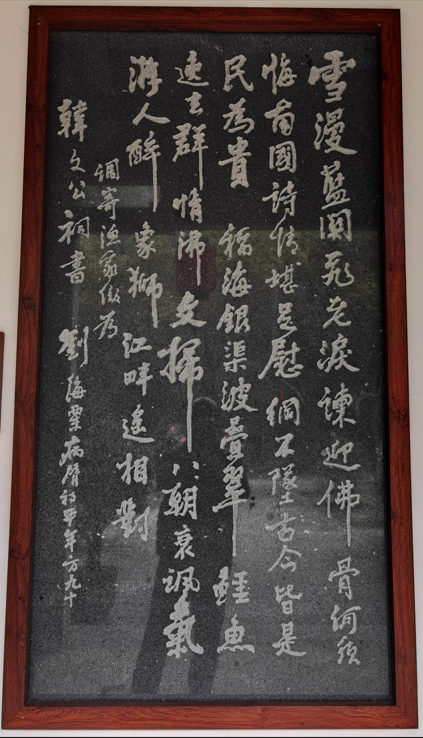 雪漫藍関飛老淚諫迎佛骨何須
悔南國詩情堪足慰網不墜古今皆是
民為貴 稻海銀渠波疊翠鱷魚
遠去群情沸支掃八朝衰颯氣
游人醉 象獅江畔遙相對
調寄漁家傲為
韓文公祠書 劉海粟病臂初平年方九十